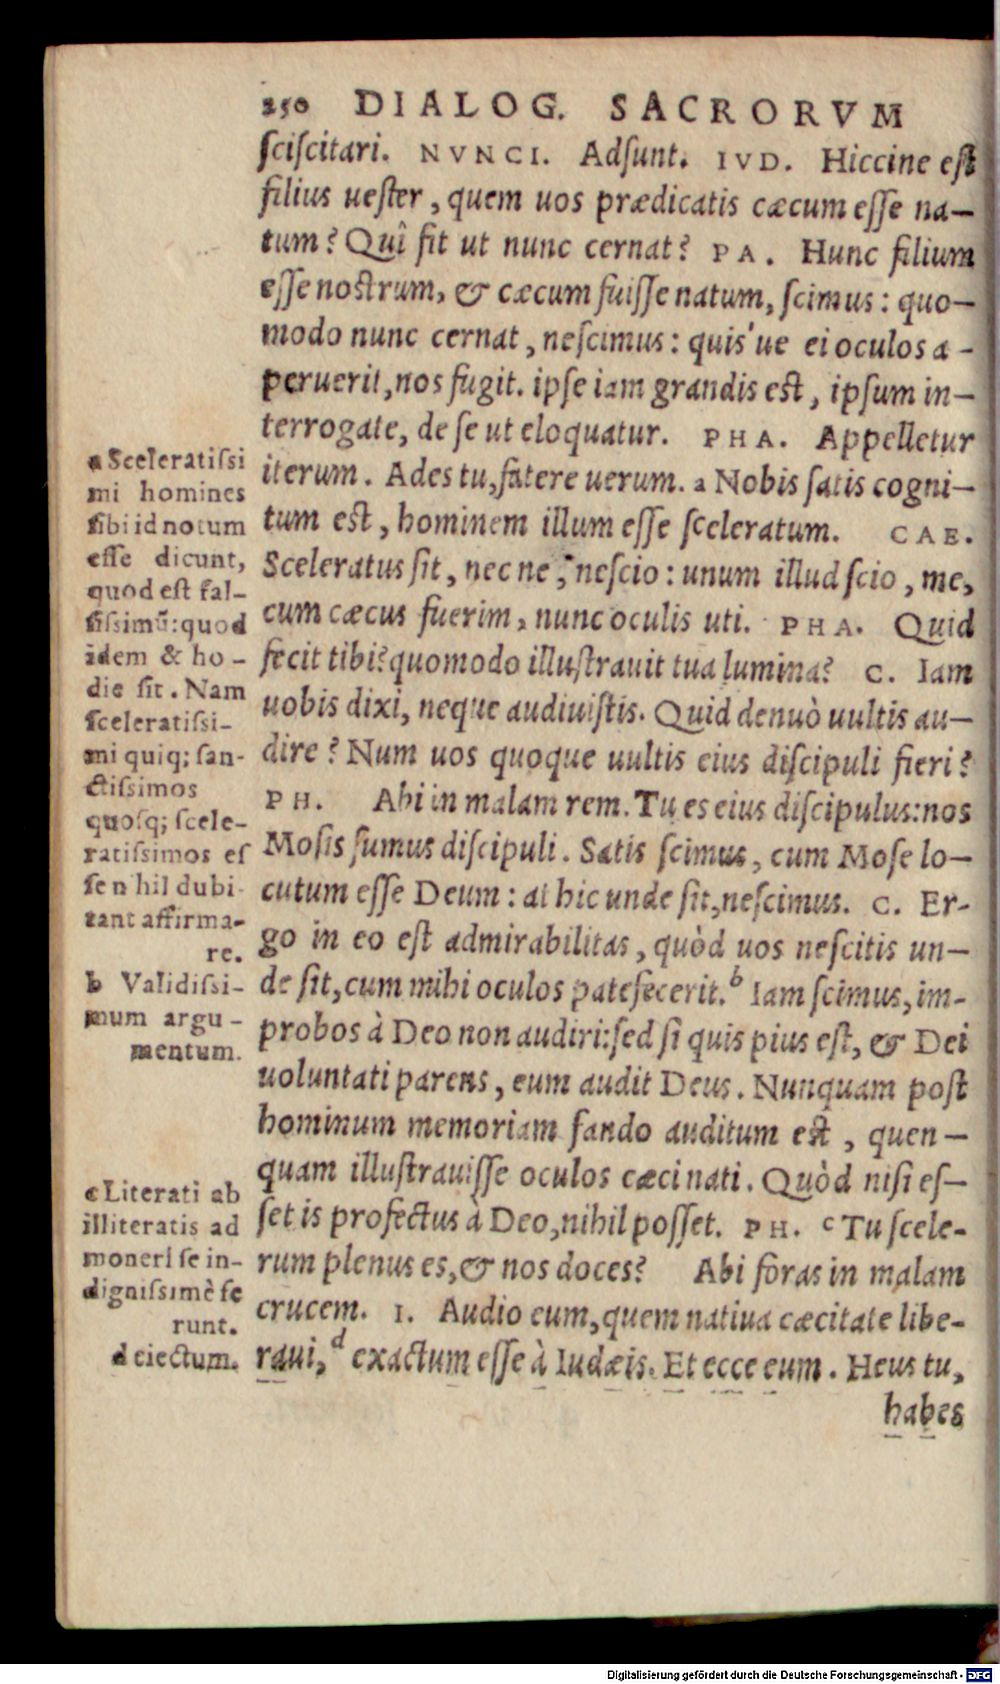 250 DIALOG. SACRORVM
sciscitari. NVNCI. Adsunt. IVD. Hiccine est
filius uester, quem uos prædicatis cæcum esse na-
tum? Quî fit ut nunc cernat? PA. Hunc filium
esse nostrum, & cæcum fuisse natum, scimus: quo-
modo nunc cernat, nescimus: quis'ue ei oculos a-
peruerit, nos fugit. ipse iam grandis est, ipsum in-
terrogate, de se ut eloquatur. PHA. Appelletur
iterum. Ades tu, fatere uerum. a Nobis satis cogni-
tum est, hominem illum esse sceleratum. CAE.
Sceleratus sit, nec ne, nescio: unum illud scio, me,
cum cæcus fuerim, nunc oculis uti. PHA. Quid
fecit tibi? quomodo illustrauit tua lumina? C. Iam
uobis dixi, neque audiuistis. Quid denuò uultis au-
dire? Num uos quoque uultis eius discipuli fieri?
PH. Abi in malam rem. Tu es eius discipulus: nos
Mosis sumus discipuli. Satis scimus, cum Mose lo-
cutum esse Deum: at hic unde sit, nescimus. C. Er-
go in eo est admirabilitas, quòd uos nescitis un-
de sit, cum mihi oculos patefecerit. b Iam scimus, im-
probos à Deo non audiri: sed si quis pius est, & Dei
uoluntati parens, eum audit Deus. Nunquam post
hominum memoriam fando auditum est, quen-
quam illustrauisse oculos cæci nati. Quòd nisi es-
set is profectus à Deo, nihil posset. PH. c Tu scele-
rum plenus es, & nos doces? Abi foras in malam
crucem. I. Audio eum, quem natiua cæcitate libe-
raui, d exactum esse à Iudæis. Et ecce eum. Heus tu,
habes
a Sceleratissi
mi homines
sibi id notum
esse dicunt,
quod est fal-
sissimũ: quod
idem & ho-
die fit. Nam
sceleratissi-
mi quiq; san-
ctissimos
quosq; scele-
ratissimos es
se nihil dubi-
tant affirma-
re.
b Validissi-
mum argu-
mentum.
c Literati ab
illiteratis ad
moneri se in-
dignissimè fe
runt.
d eiectum.
Digitalisierung gefördert durch die Deutsche Forschungsgemeinschaft - DFG